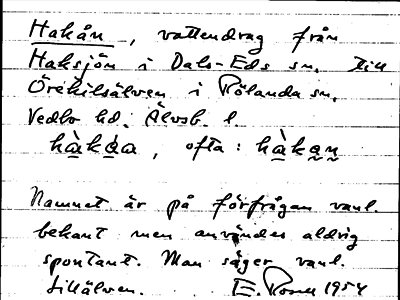 Hakån, vattendrag från
Haksjön i Dals-Eds sn. till
Örekilsälven i Rölanda sn.
Vedbo hd. Älvsb. l.
hàkåa, ofta: hàkan
Namnet är på förfrågan vanl.
bekant men användes aldrig
spontant. Man säger vanl.
Lillälven. E. 1954